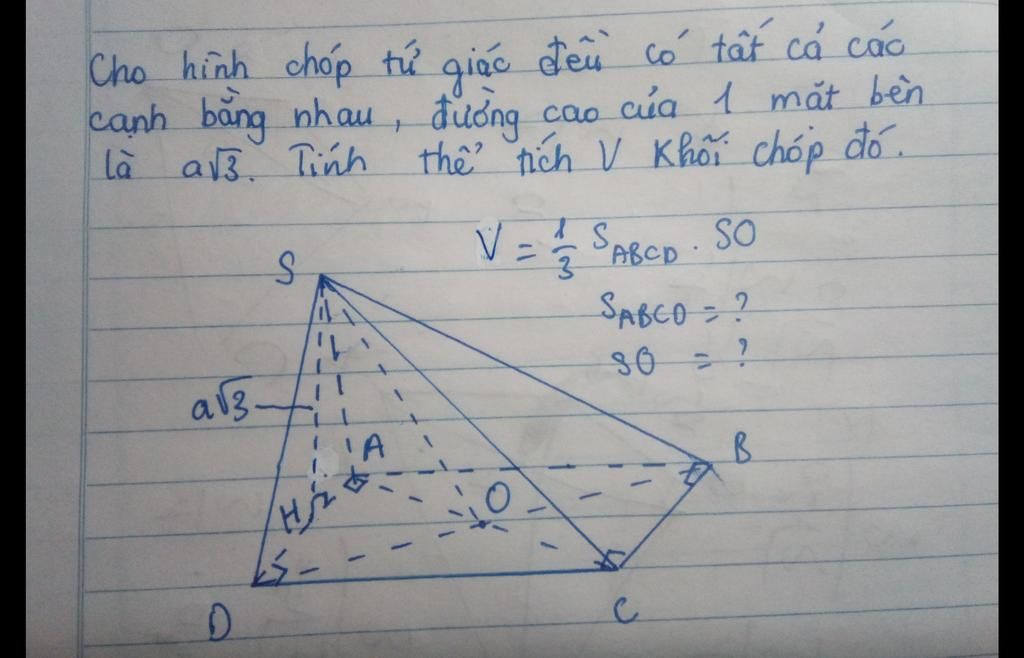 Cho hình chóp tứ giác đều có tất cả các
cạnh bằng nhau, đường cao của 1 mặt bên
là a√3. Tính thể tích V Khối chóp đó.
V = 1/3 S_ABCD . SO
S
S_ABCD = ?
SO = ?
a√3
A
B
H
O
D
C